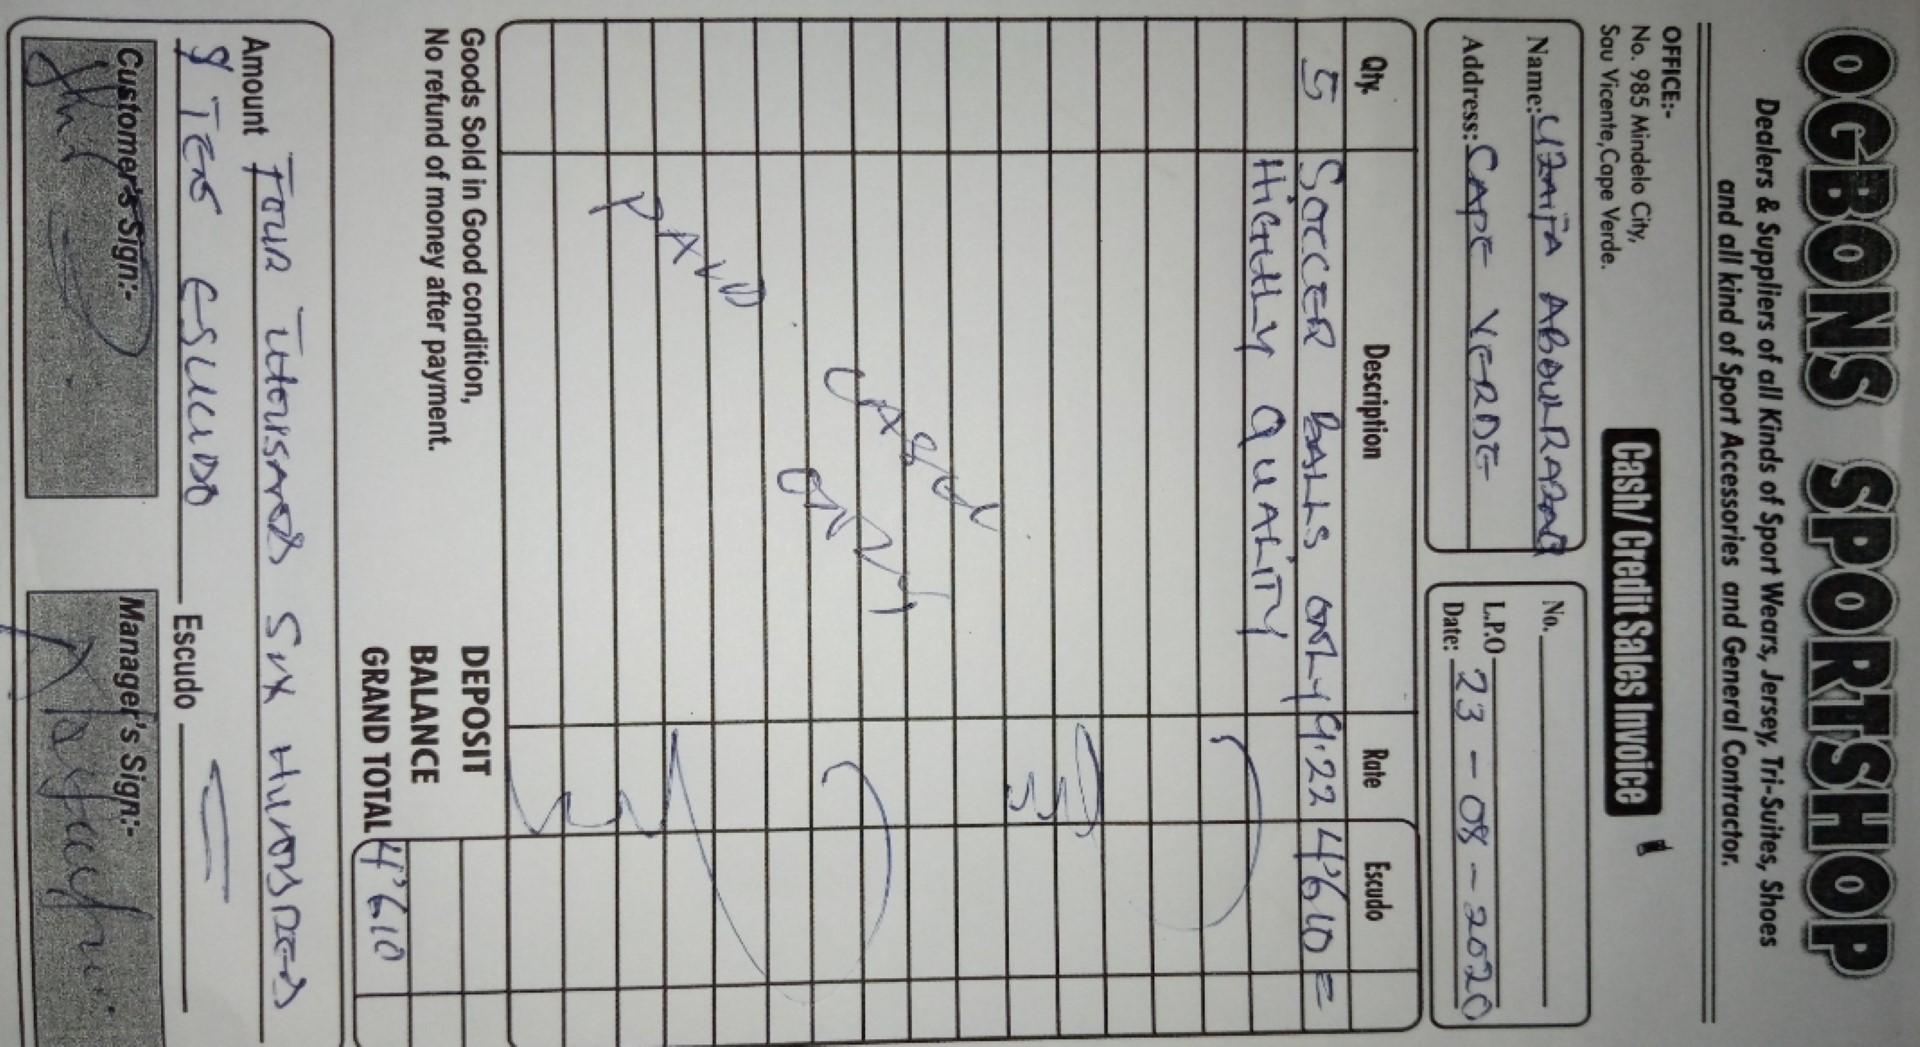 OGBONS SPORTSHOP
Dealers & Suppliers of all Kinds of Sport Wears, Jersey, Tri-Suites, Shoes
and all kind of Sport Accessories and General Contractor.
OFFICE:-
No. 985 Mindelo City,
Sau Vicente, Cape Verde.
Cash/ Credit Sales Invoice
Name: UZAIFA ABDULRAZAQ
Address: CAPE VERDE
No.
L.P.O
Date: 23-08-2020
Qty. Description Rate Escudo
5 SOCCER BALLS ONLY 9.22 4'610=
HIGHLY QUALITY
PAID
Goods Sold in Good condition,
No refund of money after payment.
DEPOSIT
BALANCE
GRAND TOTAL 4'610
Amount FOUR THOUSANDS SIX HUNDRED
& TEN ESCUDO Escudo
Customer's Sign:-
Manager's Sign:-